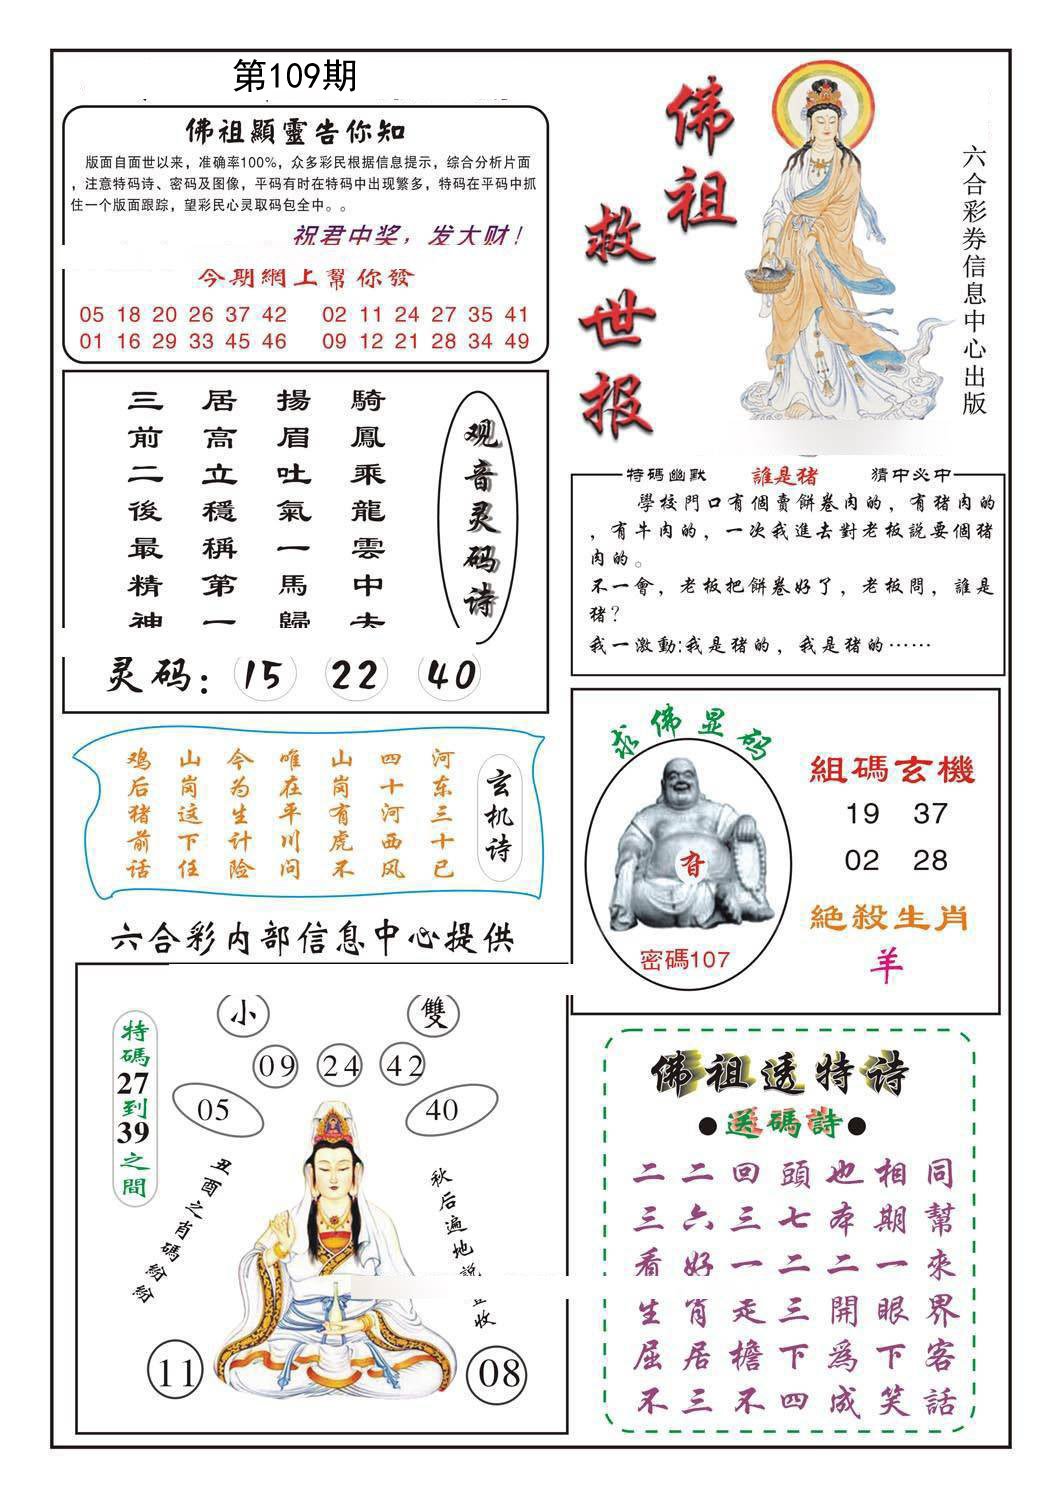 第109期
佛祖顯靈告你知
版面自面世以来，准确率100%，众多彩民根据信息提示，综合分析片面
，注意特码诗、密码及图像，平码有时在特码中出现繁多，特码在平码中抓
住一个版面跟踪，望彩民心灵取码包全中。。
祝君中奖，发大财！
今期網上幫你發
05 18 20 26 37 42 02 11 24 27 35 41
01 16 29 33 45 46 09 12 21 28 34 49
佛祖
救世报
六合彩券信息中心出版
观音灵码诗
騎鳳乘龍雲中去
揚眉吐氣一馬歸
居高立穩稱第一
三前二後最精神
灵码：15 22 40
特碼幽默 誰是猪 猜中必中
學校門口有個賣餅卷肉的，有猪肉的
，有牛肉的，一次我進去對老板説要個猪
肉的。
不一會，老板把餅卷好了，老板問，誰是
猪？
我一激動:我是猪的，我是猪的……
玄机诗
河东三十已
四十河西风
山岗有虎不
唯在平川问
今为生计险
山岗这下任
鸡后猪前话
求佛显码
密碼107
組碼玄機
19 37
02 28
絕殺生肖
羊
六合彩内部信息中心提供
特碼27到39之間
小 雙
09 24 42
05 40
丑酉之肖碼紛紛
秋后遍地説
收
11 08
佛祖透特诗
●送碼詩●
二二回頭也相同
三六三七本期幫
看好一二二一來
生肖走三開眼界
屈居檐下爲下客
不三不四成笑話